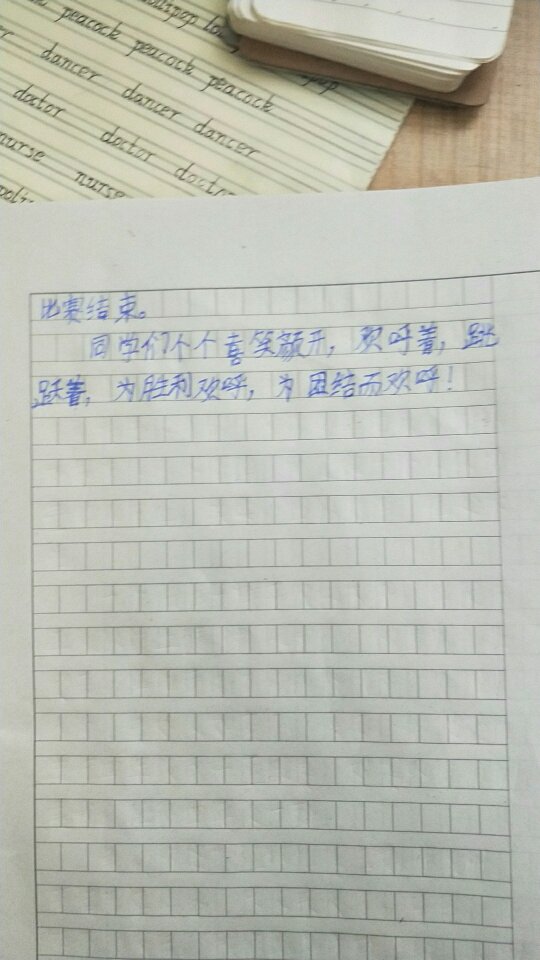 peacock peacock peacock
dancer dancer dancer
doctor doctor
nurse nurse
比赛结束。
同学们个个喜笑颜开，欢呼着，跳
跃着，为胜利欢呼，为团结而欢呼！